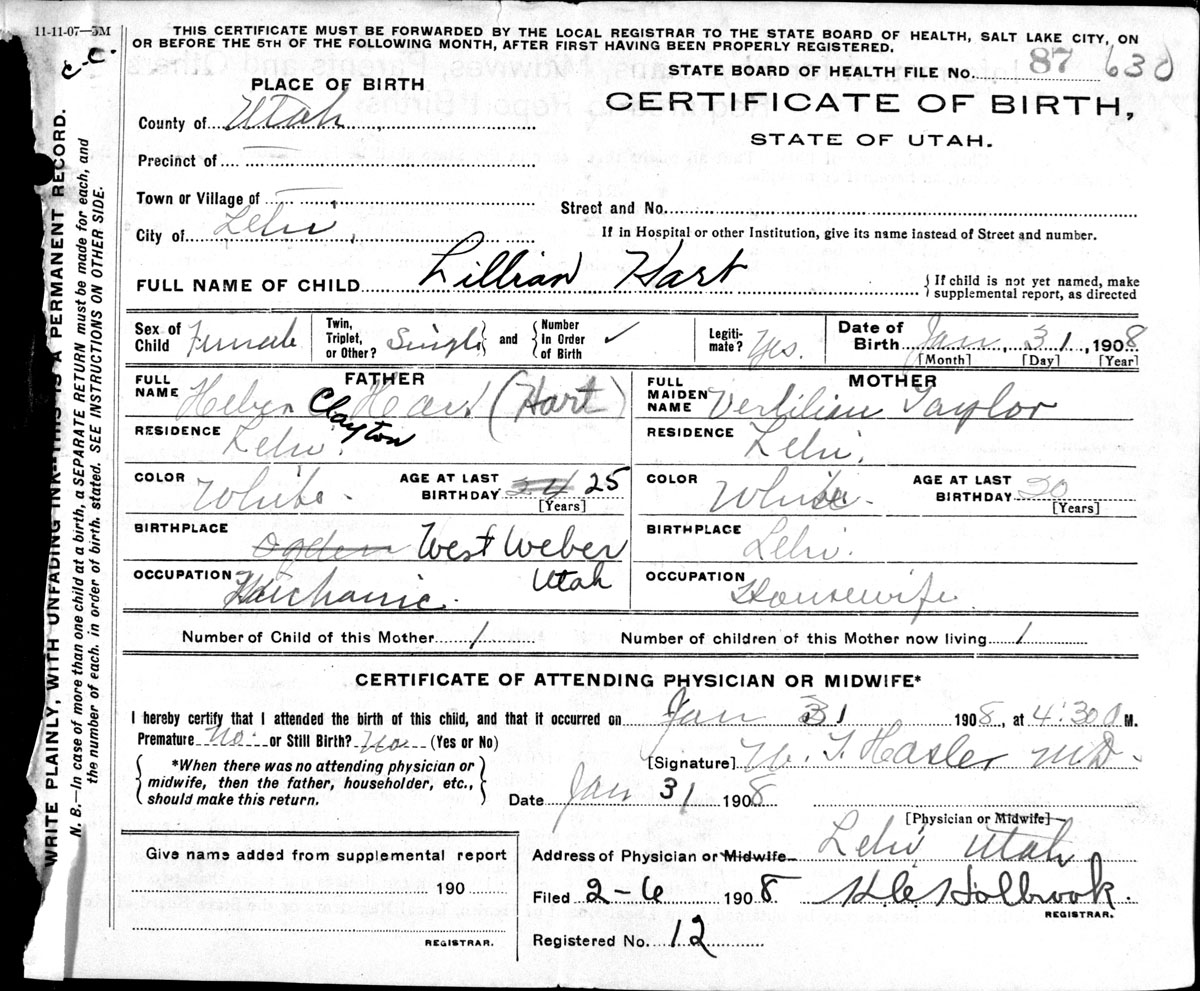 11-11-07—5M
THIS CERTIFICATE MUST BE FORWARDED BY THE LOCAL REGISTRAR TO THE STATE BOARD OF HEALTH, SALT LAKE CITY, ON
OR BEFORE THE 5TH OF THE FOLLOWING MONTH, AFTER FIRST HAVING BEEN PROPERLY REGISTERED.
C.C.
STATE BOARD OF HEALTH FILE No. 87 630
PLACE OF BIRTH
CERTIFICATE OF BIRTH,
STATE OF UTAH.
County of Utah
Precinct of
Town or Village of
Street and No.
City of Lehi
If in Hospital or other Institution, give its name instead of Street and number.
FULL NAME OF CHILD Lillian Hart
{ If child is not yet named, make
supplemental report, as directed
Sex of Child Female
Twin, Triplet, or Other? Single } and { Number In Order of Birth ✓
Legitimate? Yes.
Date of Birth Jan 31, 1908
[Month] [Day] [Year]
FATHER
FULL NAME Heber Clayton Hart (Hart)
RESIDENCE Lehi.
COLOR White.
AGE AT LAST BIRTHDAY 24 25
[Years]
BIRTHPLACE Ogden West Weber
Utah
OCCUPATION Mechanic.
MOTHER
FULL MAIDEN NAME Vertilian Taylor
RESIDENCE Lehi.
COLOR White.
AGE AT LAST BIRTHDAY 20
[Years]
BIRTHPLACE Lehi.
OCCUPATION Housewife.
Number of Child of this Mother 1
Number of children of this Mother now living 1
CERTIFICATE OF ATTENDING PHYSICIAN OR MIDWIFE*
I hereby certify that I attended the birth of this child, and that it occurred on Jan 31 1908, at 4:30 M.
Premature No. or Still Birth? No. (Yes or No)
{ *When there was no attending physician or
midwife, then the father, householder, etc.,
should make this return. }
[Signature] W. T. Hasler MD.
Date Jan 31 1908
[Physician or Midwife]
Address of Physician or Midwife Lehi, Utah
Give name added from supplemental report
190
REGISTRAR.
Filed 2-6 1908
Holbrook.
REGISTRAR.
Registered No. 12
WRITE PLAINLY, WITH UNFADING INK—THIS IS A PERMANENT RECORD.
N. B.—In case of more than one child at a birth, a SEPARATE RETURN must be made for each, and
the number of each, in order of birth, stated. SEE INSTRUCTIONS ON OTHER SIDE.